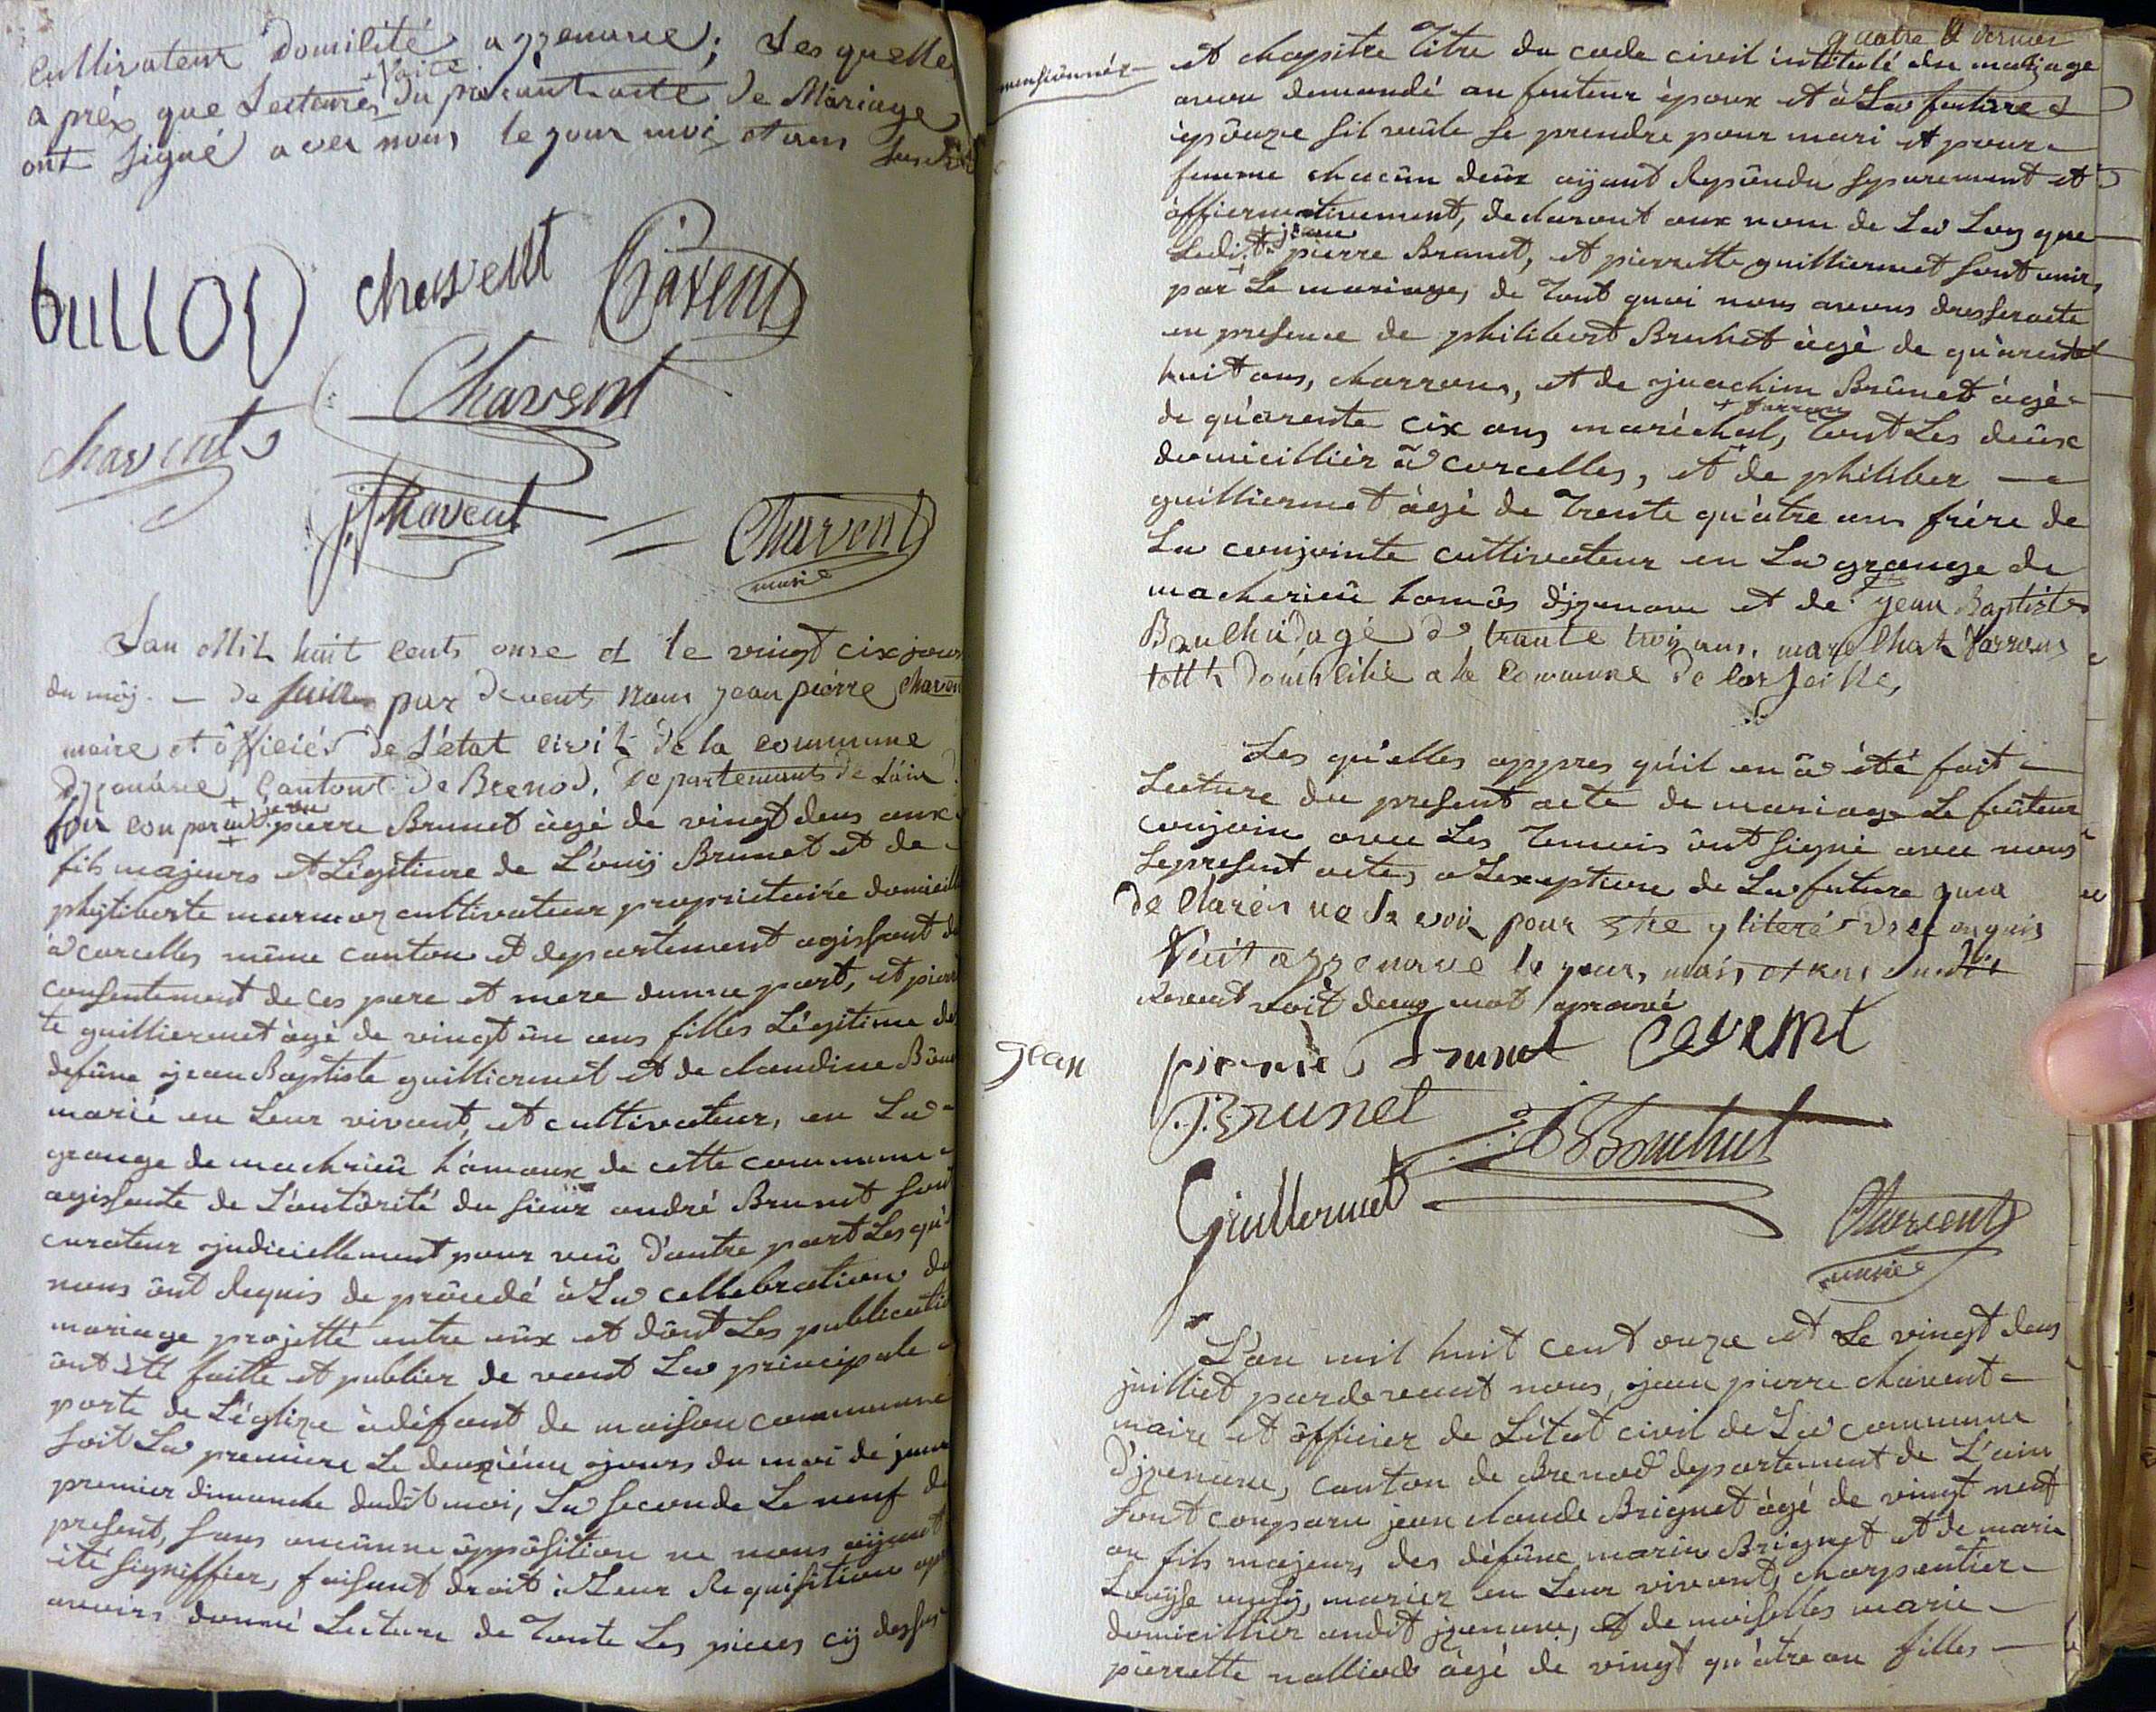 Cultivateur domilité azzenave; Les quelles
apréx que Lectures + Faite du présant acte de Mariage
ont signé avec nous le jour moi et ans susdit
bulloD chavent Chavent
Chavent
chavent
JP Chavent
Chavent
maire
Lan Mil huit cents onse et le vingt cix jours
du moÿ — de juillet par devents Nous jean pierre Chavent
maire et ôfficiér de L'état civil de la commune
dyzenave Canton de Brenod, Departements de L'ain
son conparu + jean pierre Brunet àgé de vingt deus ans
fils majeurs et Légitime de L'ouis Brunet et de
philiberte marmoz cultivateur proprietaire domicillié
à corcelles même canton et departement agissant du
consentement de ces pere et mere dunne part, et pierret
te guilliermet àgé de vingt ûn ans filles Légitime de
defûnc jean Baptiste guilliermet et de claudine
marié en Leur vivant, et cultivateur, en La
grange de machrieû hamaux de cette commune
agissante de L'autôrité du sieur andré Brunet sont
curateur judiciellement pour veû d'autre part Les qu'
nous ônt dequis de prôcedé à La cellebration du
mariage projetté entre eûx et dônt Les publicatio
ônt été faitte et publier de vant La principale
porte de L'églize à défaut de maison commune
soit La premiere Le deuxiéme jours du moi de
premier dimanche dudit moi, La seconde Le neuf du
present, sans aucûnne ôppôsition ne nous aÿant
été signiffier, faisant droit à Leur Requisition apr
avoirs donné Lecture de toute Les pieces cÿ dessus
quatre & dernier
mensionnér — et chapitre titre du code civil intitulé du mariage
avon demandé au futeur époux et à La future
épôuze sil veûle se prendre pour mari et pour
femme chacûn deûx aÿant Repôndu sparement et
âffiermativement, declaront aux nom de La Loy que
Ledit + jean pierre Brunet, et pierrette guilliermet sont unis
par Le mariage, de tout quoi nous avons dresser acte
en presence de philibert Brunet àgé de qu'arente
huit ans, charrons, et de joachim Brûnet àgé
de qu'arente cix ans maréchal, + farran tout Les deûx
domicillier à corcelles, et de philiber —
guilliermet àgé de trente qu'atre ans frére de
La conjointe cultivateur en La grange de
macherieû hamôs d'jzenave et de jean Baptiste
Bouchu dagé de trante troy ans, marechat farrans
toutt domicilié a la commune de Corseille,
Les qu'elles appres qu'il en à été fait
Lecture du present acte de mariage Le fûteur
conjoin avec Les temoin ônt signé avec nous
Le present acte, a Lexeption de La future qui a
de Claréz ne sa voir pour stre y literés de ce anquis
Fait azzenave le jour, mais et ans sudit
Renvoit voit deux mot aprouvé
jean pierre Brunet CAVENT
P. Brunet JB Bouchut
Guillermet
Chavent
maire
L'an mil huit cent onze et Le vingt deus
juilliet pardevant nous, jean pierre chavent
maire et ôfficier de L'état civil de La commune
D'jzenave, canton de Brenod departement de L'ain
sont conparu jean claude Brignet àgé de vingt neuf
an fils majeurs des défûnc marin Brignet et de marie
Louÿse, marier en Leur vivant, charpentier
domicillier audit jzenave, et de moiselles marie —
pierrette nalliod àgé de vingt qu'atre an filles —